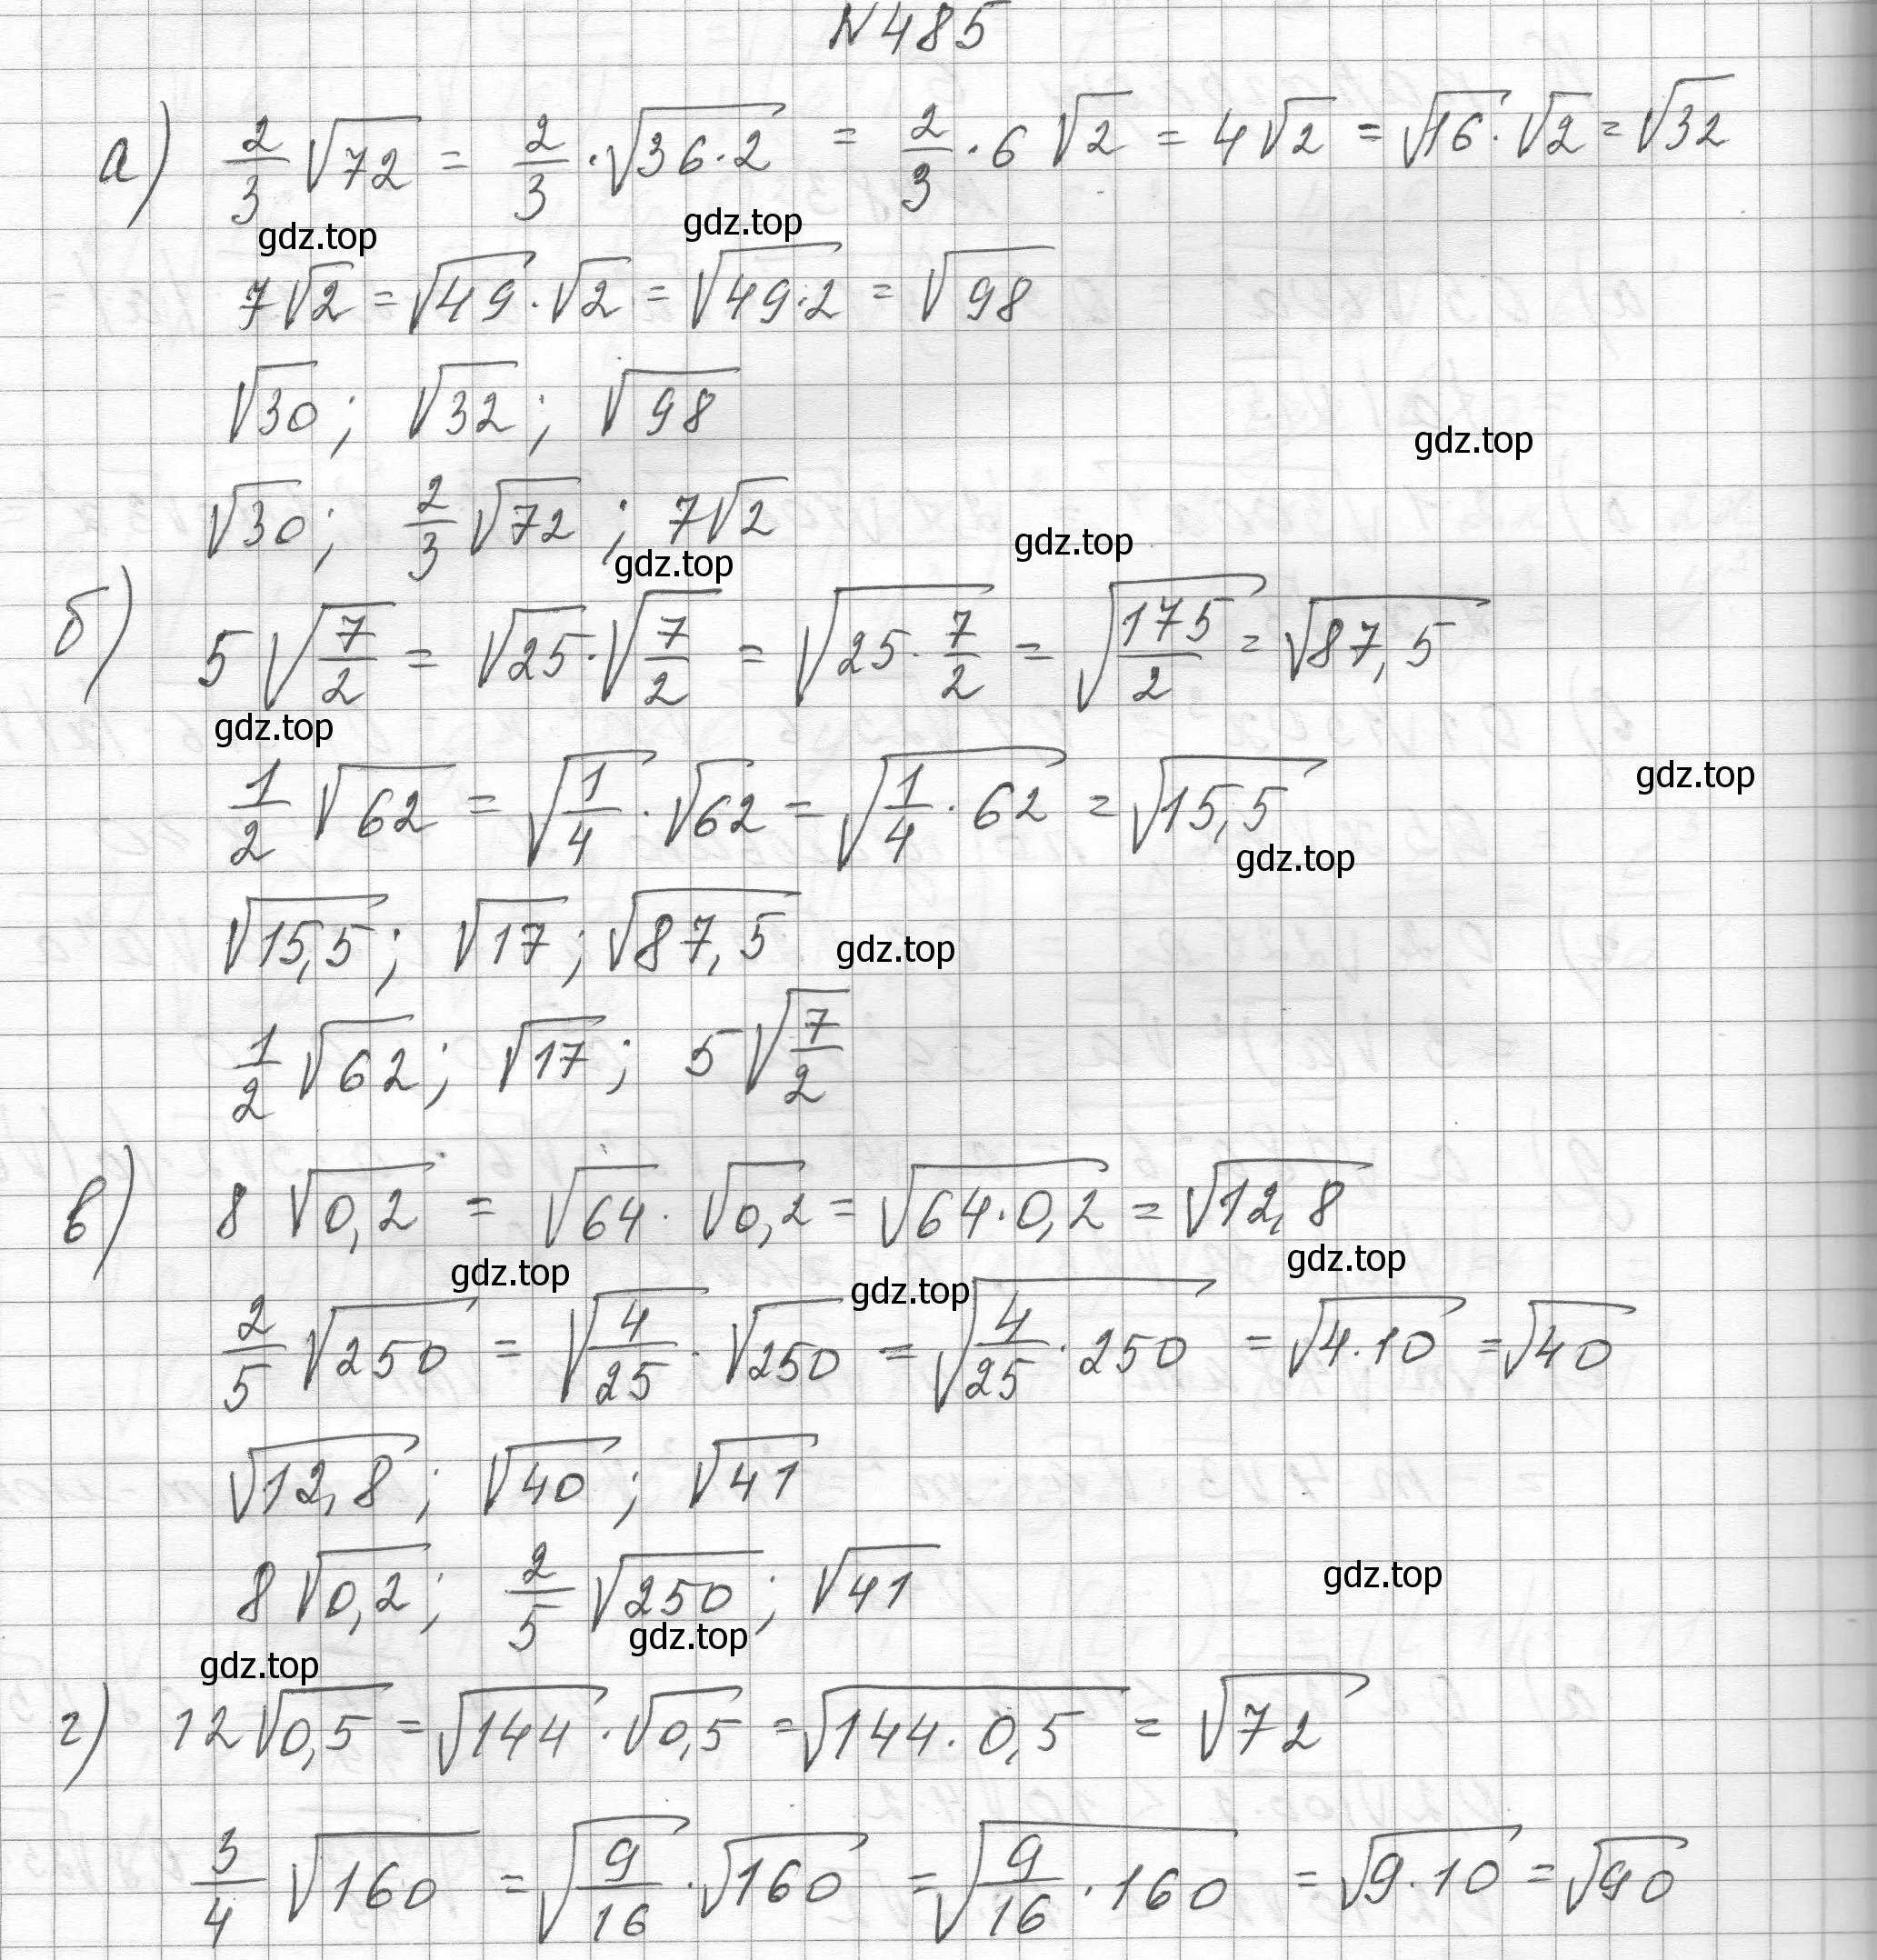 N485
а) 2/3 √72 = 2/3 · √36·2 = 2/3 · 6√2 = 4√2 = √16 · √2 = √32
gdz.top gdz.top
7√2 = √49 · √2 = √49·2 = √98
√30; √32; √98
gdz.top
√30; 2/3 √72; 7√2
gdz.top gdz.top
б) 5√7/2 = √25 · √7/2 = √25 · 7/2 = √175/2 = √87,5
gdz.top
1/2 √62 = √1/4 · √62 = √1/4 · 62 = √15,5
gdz.top
gdz.top
√15,5; √17; √87,5 gdz.top
1/2 √62; √17; 5√7/2
в) 8√0,2 = √64 · √0,2 = √64·0,2 = √12,8
gdz.top gdz.top gdz.top
2/5 √250 = √4/25 · √250 = √4/25 · 250 = √4·10 = √40
√12,8; √40; √41
8√0,2; 2/5 √250; √41
gdz.top
gdz.top gdz.top
г) 12√0,5 = √144 · √0,5 = √144·0,5 = √72
3/4 √160 = √9/16 · √160 = √9/16 · 160 = √9·10 = √90